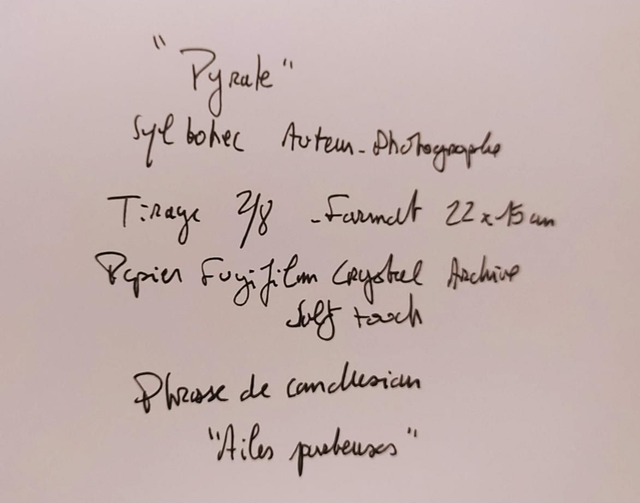 "Pyrale"
Syl bohec Auteur-Photographe
Tirage 2/8 - Format 22 x 15 cm
Papier Fugifilm Crystal Archive
Soft touch
Phrase de conclusion
"Ailes poreuses"